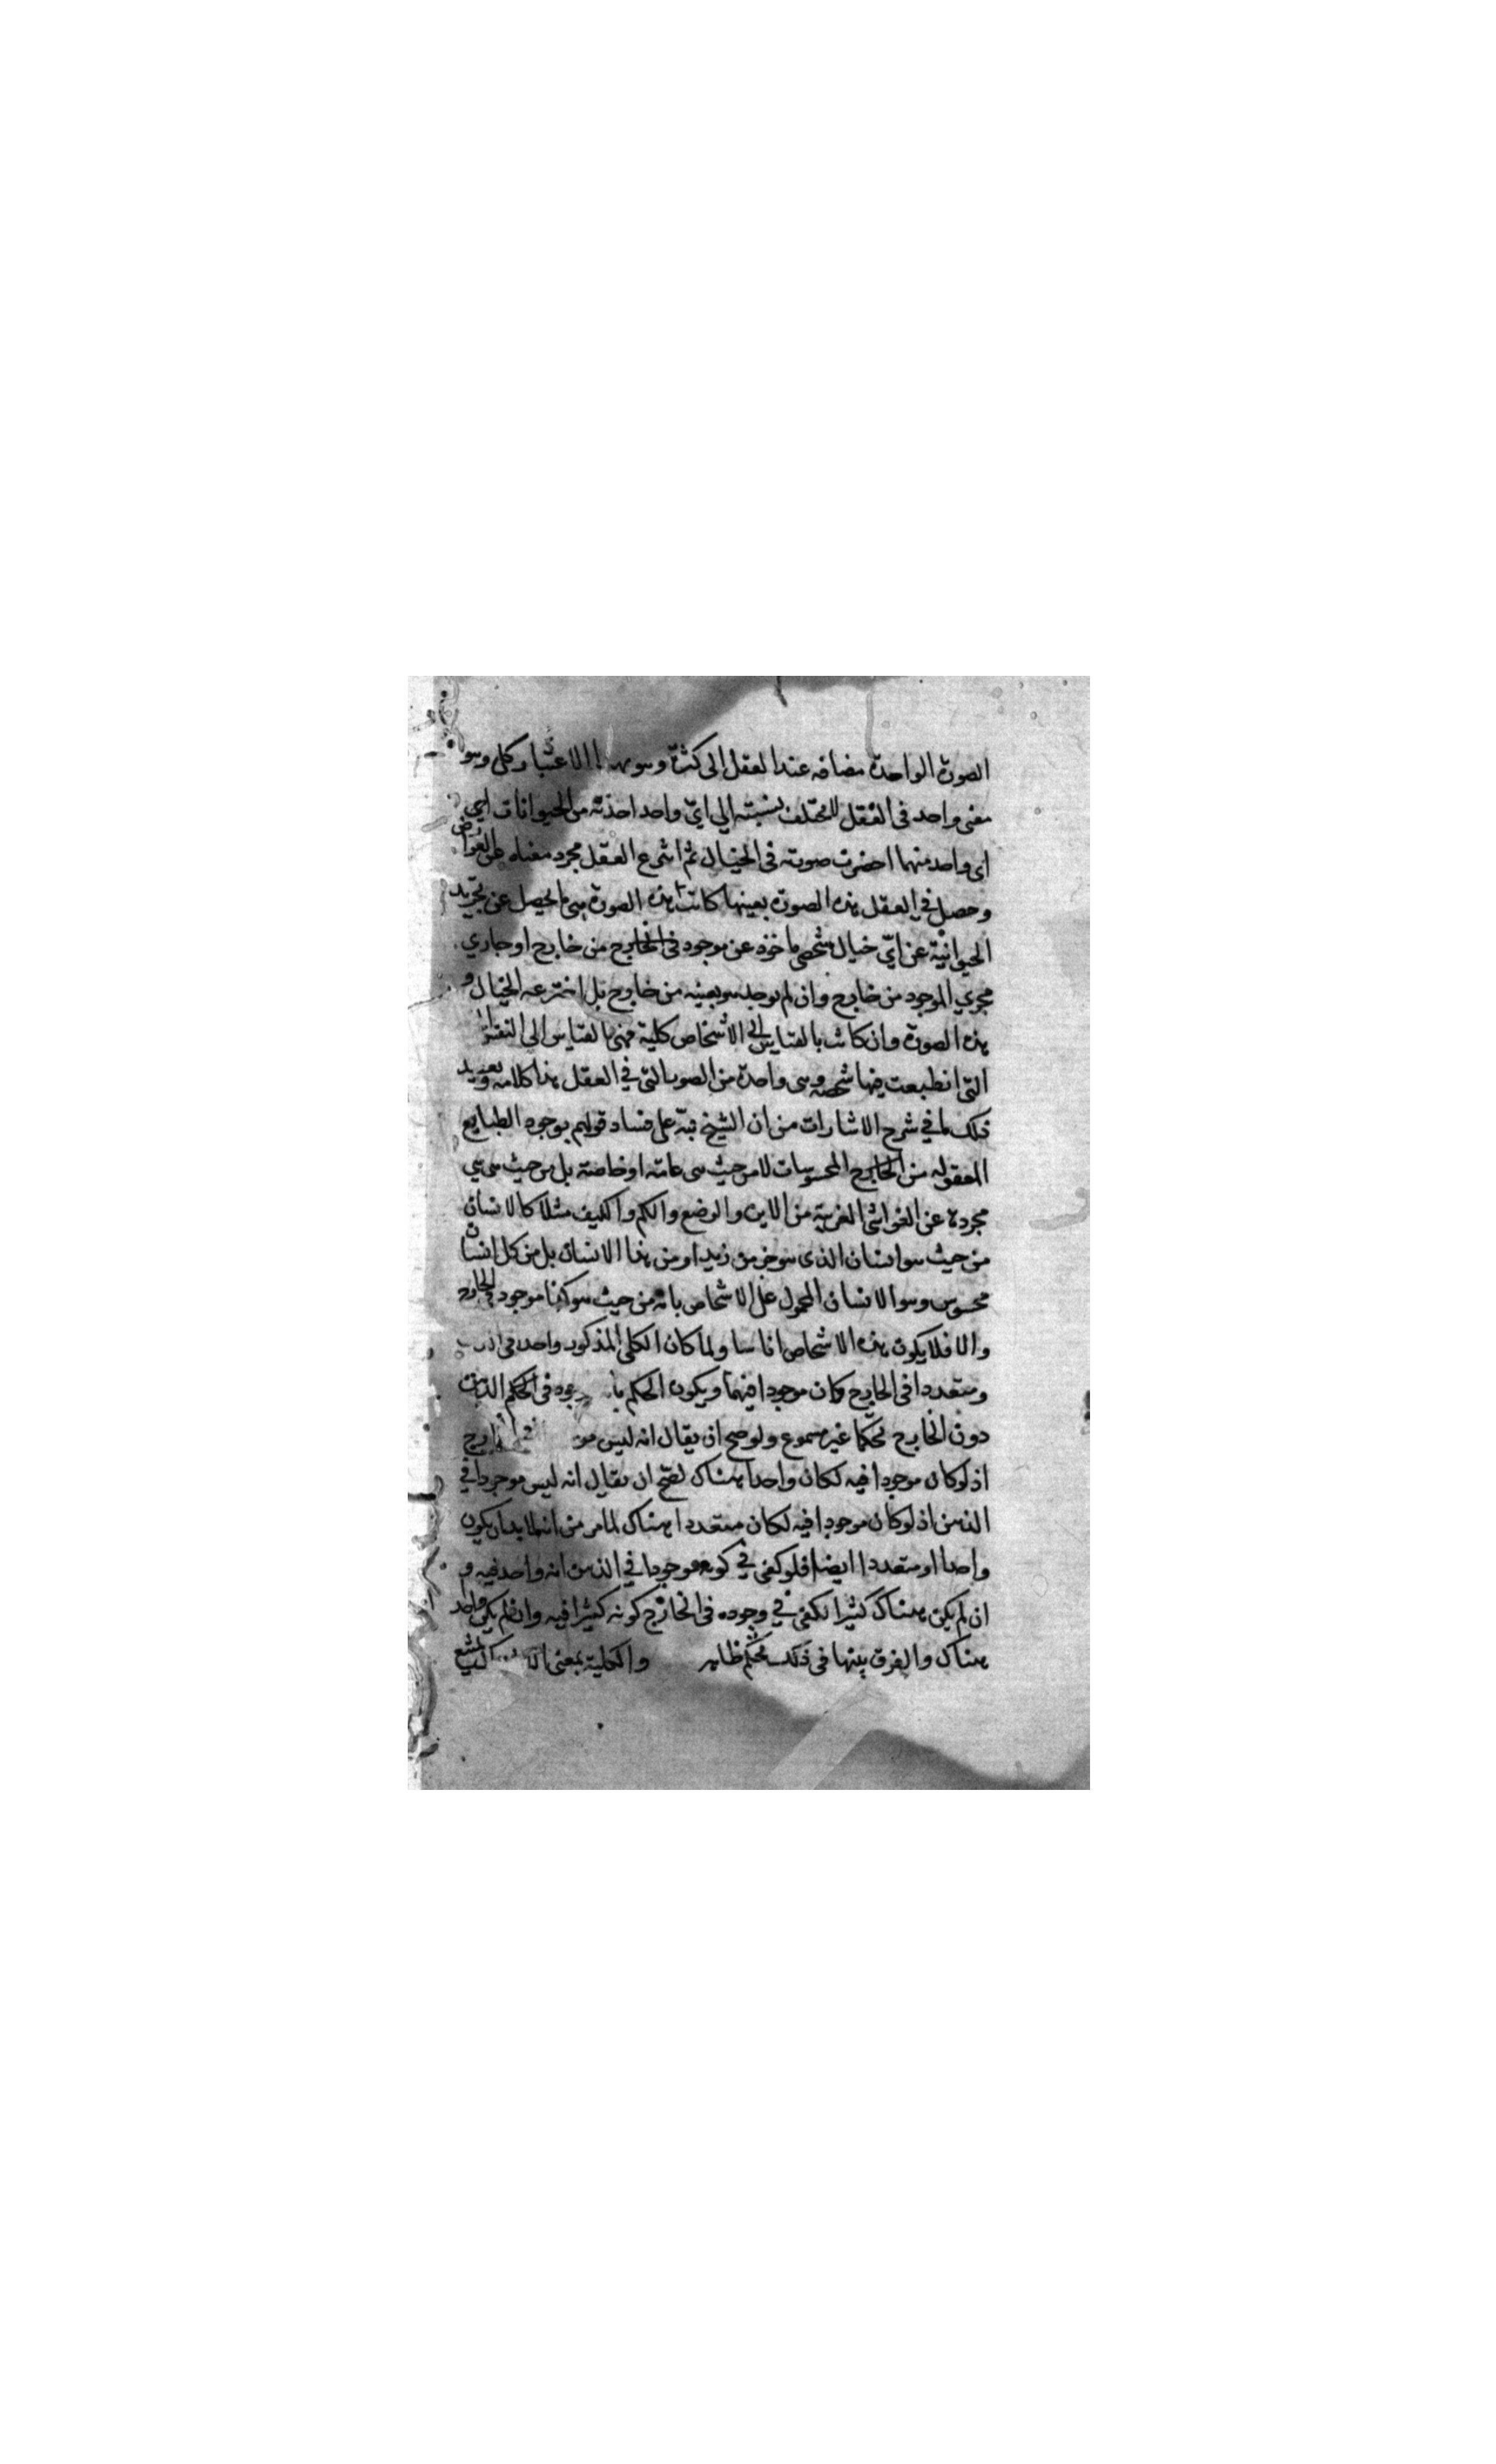 الصورة الواحدة مضافه عند العقل الى كثرة وهو بهذا الاعتبار كلى وهو
معنى واحد فى العقل لا يختلف نسبته الى اى واحد اخذته من الحيوانات اى
اى واحد منها احضرت صورته فى الخيال ثم انتزع العقل مجرد معناه عن العوارض
وحصل في العقل هذه الصورة بعينها كانت هذه الصورة هى ما يحصل عن تجريد
الحيوانية عن اىّ خيال شخصى ماخوذ عن موجود فى الخارج من خارج او جاري
مجري الموجود من خارج وان لم يوجد هو بعينه من خارج بل اخترعه الخيال و
هذه الصورة وان كانت بالقياس الى الاشخاص كلية فهى بالقياس الى النفس
التى انطبعت فيها شخصية وهى واحدة من الصور التى في العقل هذا كلامه ويؤيد
ذلك ما في شرح الاشارات من ان الشيخ نبّه على فساد قولهم بوجود الطبايع
المعقوله من الخارج المحسوسات لا من حيث هى عامة او خاصة بل من حيث هى هى
مجردة عن الغواشى الغريبة من الاين والوضع والكم والكيف مثلا كالانسان
من حيث هو انسان الذى هو جزء من زيد او من هذا الانسان بل من كل انسان
محسوس وهو الانسان المحمول على الاشخاص بانه من حيث هو هكذا موجود فى الخارج
والا فلا يكون هذه الاشخاص اناسا ولما كان الكلى المذكور واحدا فى
ومتعددا فى الخارج كان موجودا فيهما ويكون الحكم فى الحكم الذهن
دون الخارج تحكّما غير مسموع ولو صح ان يقال انه ليس
اذ لو كان موجودا فيه لكان واحدا هناك لصحّ ان يقال انه ليس موجودا في
الذهن اذ لو كان موجودا فيه لكان متعددا هناك لما مر من انه لا بد ان يكون
واحدا او متعددا ايضا فلو كفى في كونه موجودا في الذهن انه واحد فيه و
ان لم يكن هناك كثيرا لكفى في وجوده فى الخارج كونه كثيرا فيه وان لم يكن واحد
هناك والفرق بينهما فى ذلك تحكّم ظاهر والكلية بمعنى